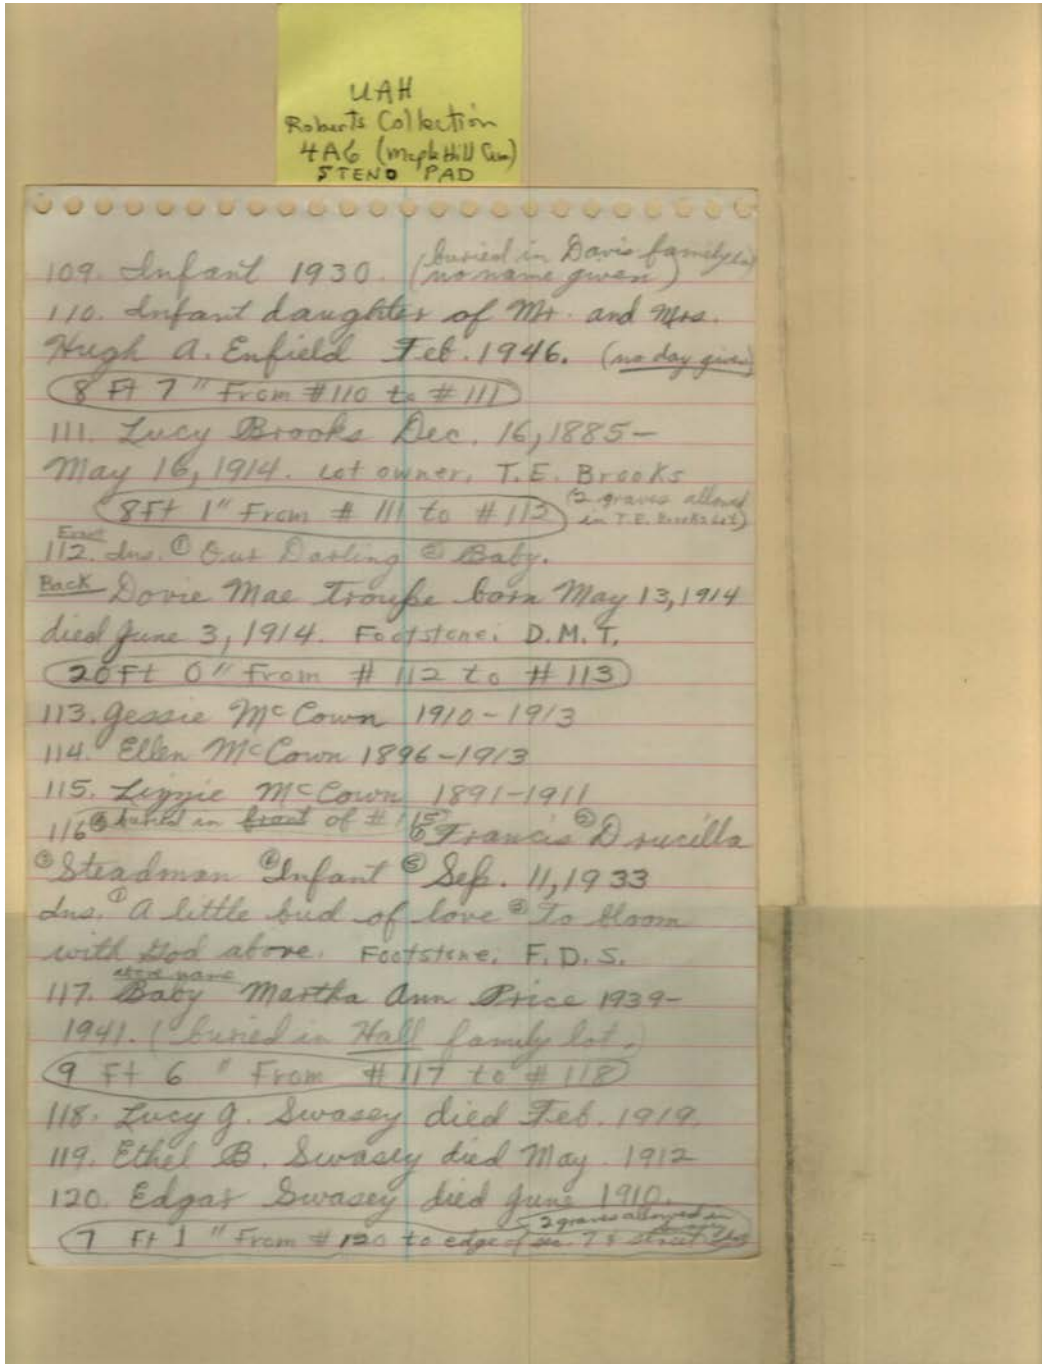 UAH
Roberts Collection
4A6 (Maple Hill Cem)
STENO PAD
109. Infant 1930. (buried in Davis family lot)
(no name given)
110. Infant daughter of Mr. and Mrs.
Hugh A. Enfield Feb. 1946. (no day given)
8 Ft 7" From #110 to #111
111. Lucy Brooks Dec. 16, 1885-
May 16, 1914. Lot owner, T.E. Brooks
8 Ft 1" From # 111 to # 112 (2 graves allowed
in T.E. Brooks Lot)
Front
112. Ins. ① Our Darling ② Baby.
Back Dovie Mae Troupe born May 13, 1914
died June 3, 1914. Footstone: D.M.T.
20 Ft 0" From # 112 to # 113
113. Jessie McCown 1910-1913
114. Ellen McCown 1896-1913
115. Lizzie McCown 1891-1911
116 buried in front of #115 ① Francis ② Drucilla
③ Steadman ④ Infant ⑤ Sep. 11, 1933
Ins. ① A little bud of love ② To bloom
with God above. Footstone. F.D.S.
above name
117. Baby Martha Ann Price 1939-
1941. (buried in Hall family lot.)
9 Ft 6" From #117 to #118
118. Lucy G. Swasey died Feb. 1919.
119. Ethel B. Swasey died May. 1912
120. Edgar Swasey died June 1910.
2 graves allowed in
7 Ft 1" From #120 to edge of sec. 7 & street